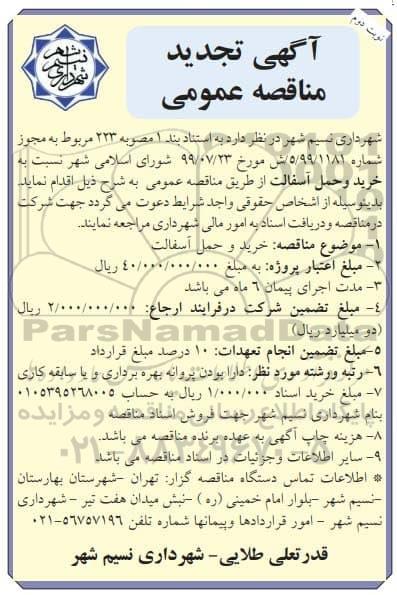 نوبت دوم
شهرداری نسیم شهر
آگهی تجدید
مناقصه عمومی
شهرداری نسیم شهر در نظر دارد به استناد بند ۱ مصوبه ۲۲۳ مربوط به مجوز
شماره ۵/۹۹/۱۱۸۱/ش مورخ ۹۹/۰۷/۲۳ شورای اسلامی شهر نسبت به
خرید وحمل آسفالت از طریق مناقصه عمومی به شرح ذیل اقدام نماید.
بدینوسیله از اشخاص حقوقی واجد شرایط دعوت می گردد جهت شرکت
درمناقصه ودریافت اسناد به امور مالی شهرداری مراجعه نمایند.
۱- موضوع مناقصه: خرید و حمل آسفالت
۲- مبلغ اعتبار پروژه: به مبلغ ۴۰/۰۰۰/۰۰۰/۰۰۰ ریال
۳- مدت اجرای پیمان ۶ ماه می باشد
۴- مبلغ تضمین شرکت درفرایند ارجاع: ۲/۰۰۰/۰۰۰/۰۰۰ ریال
(دو میلیارد ریال)
۵-مبلغ تضمین انجام تعهدات: ۱۰ درصد مبلغ قرارداد
۶- رتبه ورشته مورد نظر: دارا بودن پروانه بهره برداری و یا سابقه کاری
۷- مبلغ خرید اسناد ۱/۰۰۰/۰۰۰ ریال به حساب ۰۱۰۵۳۹۵۲۶۸۰۰۵
بنام شهرداری نسیم شهر جهت فروش اسناد مناقصه
۸- هزینه چاپ آگهی به عهده برنده مناقصه می باشد.
۹- سایر اطلاعات وجزئیات در اسناد مناقصه می باشد
* اطلاعات تماس دستگاه مناقصه گزار: تهران -شهرستان بهارستان
-نسیم شهر -بلوار امام خمینی (ره) -نبش میدان هفت تیر - شهرداری
نسیم شهر - امور قراردادها وپیمانها شماره تلفن ۵۶۷۵۷۱۹۶-۰۲۱
قدرتعلی طلایی- شهرداری نسیم شهر
ParsNamadData